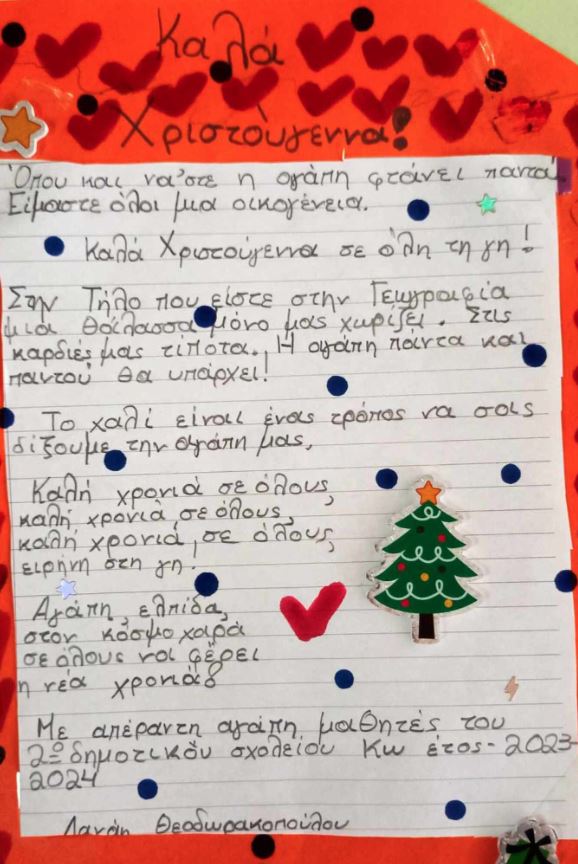 Καλά
Χριστούγεννα!
Όπου και να'στε η αγάπη φτάνει παντα
Είμαστε όλοι μια οικογένεια.
Καλά Χριστούγεννα σε όλη τη γη!
Στην Τήλο που είστε στην Γεωγραφία
μια θάλασσα μόνο μας χωρίζει. Στις
καρδιές μας τίποτα. Η αγάπη παντα και
παντού θα υπάρχει!
Το χαλί είναι ένας τρόπος να σας
δίξουμε την αγάπη μας,
Καλή χρονιά σε όλους,
καλή χρονιά, σε όλους,
καλή χρονιά, σε όλους,
ειρήνη στη γη.
Αγάπη, ελπίδα,
στον κόσμο χαρά
σε όλους να φέρει
η νέα χρονιά
Με απέραντη αγάπη μαθητές του
2ο δημοτικού σχολείου Κω έτος-2023-
2024
Δανάη Θεοδωρακοπούλου